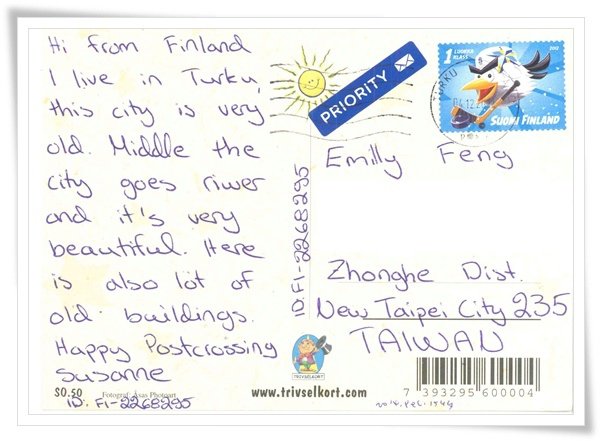 Hi from Finland
I live in Turku,
this city is very
old. Middle the
city goes riwer
and it's very
beautiful. Here
is also lot of
old buildings.
Happy Postcrossing
Susanne
ID: FI-2268295
S0.50 Fotograf:
PRIORITY
1 LUOKKA
KLASS
2012
SUOMI FINLAND
TURKU
04.12.
Emilly Feng
Zhonghe Dist.
New Taipei City 235
TAIWAN
ID. FI-2268295
TRIVSELKORT
www.trivselkort.com
7 393295 600004